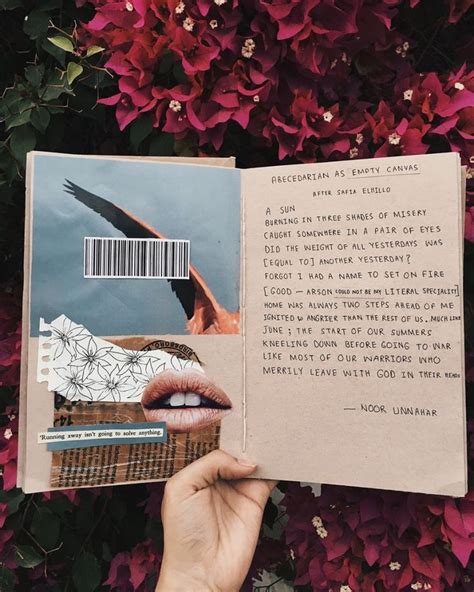 'Running away isn't going to solve anything.
ABECEDARIAN AS EMPTY CANVAS
AFTER SAFIA ELHILLO
A SUN
BURNING IN THREE SHADES OF MISERY
CAUGHT SOMEWHERE IN A PAIR OF EYES
DID THE WEIGHT OF ALL YESTERDAYS WAS
[EQUAL TO] ANOTHER YESTERDAY?
FORGOT I HAD A NAME TO SET ON FIRE
[GOOD — ARSON COULD NOT BE MY LITERAL SPECIALITY]
HOME WAS ALWAYS TWO STEPS AHEAD OF ME
IGNITED W ANGRIER THAN THE REST OF US. MUCH LIKE
JUNE; THE START OF OUR SUMMERS
KNEELING DOWN BEFORE GOING TO WAR
LIKE MOST OF OUR WARRIORS WHO
MERRILY LEAVE WITH GOD IN THEIR HEADS
— NOOR UNNAHAR